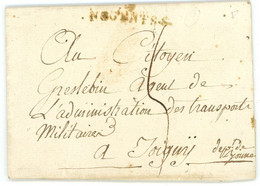 NOGENT S S
Au Citoyen
Greslebin Agent de
L'administration des transports
Militaires
5
A Joigny dept de
l'yonne